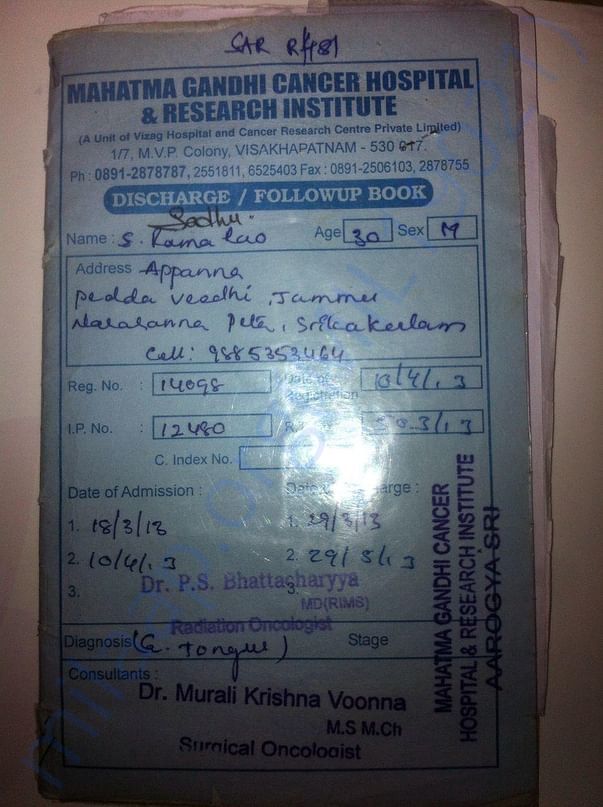 SAR R/481
MAHATMA GANDHI CANCER HOSPITAL
& RESEARCH INSTITUTE
(A Unit of Vizag Hospital and Cancer Research Centre Private Limited)
1/7, M.V.P. Colony, VISAKHAPATNAM - 530 017.
Ph : 0891-2878787, 2551811, 6525403 Fax : 0891-2506103, 2878755
DISCHARGE / FOLLOWUP BOOK
Sadhu.
Name : S. Rama Rao Age 30 Sex M
Address Appanna
pedda veedhi, Jammu
Narasanna Peta, Srikakulam
Cell: 9885353464
Reg. No. : 14098 Date of Registration 10/4/13
I.P. No. : 12480
C. Index No.
Date of Admission : Date of Discharge :
1. 18/3/13 1. 29/3/13
2. 10/4/13 2. 29/5/13
3. 3.
Dr. P.S. Bhattacharyya
MD(RIMS)
Radiation Oncologist
Diagnosis (Ca. Tongue) Stage
Consultants :
Dr. Murali Krishna Voonna
M.S M.Ch
Surgical Oncologist
MAHATMA GANDHI CANCER
HOSPITAL & RESEARCH INSTITUTE
AAROGYA SRI